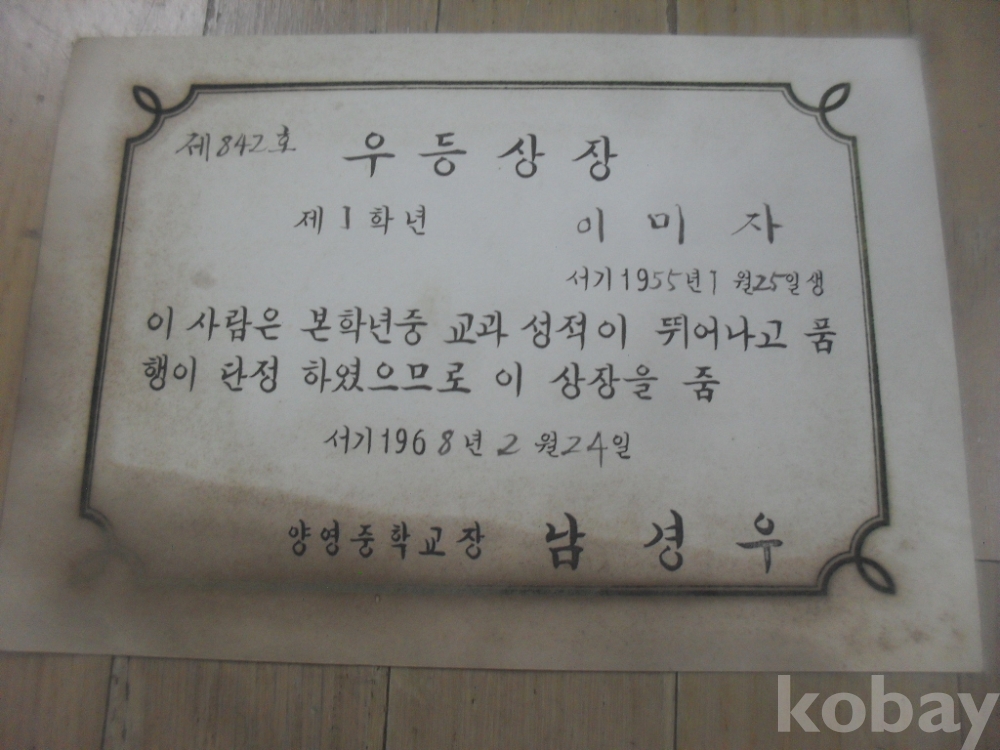 제842호 우등상장
제1학년 이미자
서기1955년1월25일생
이 사람은 본학년중 교과 성적이 뛰어나고 품
행이 단정 하였으므로 이 상장을 줌
서기1968년2월24일
양영중학교장 남경우
kobay